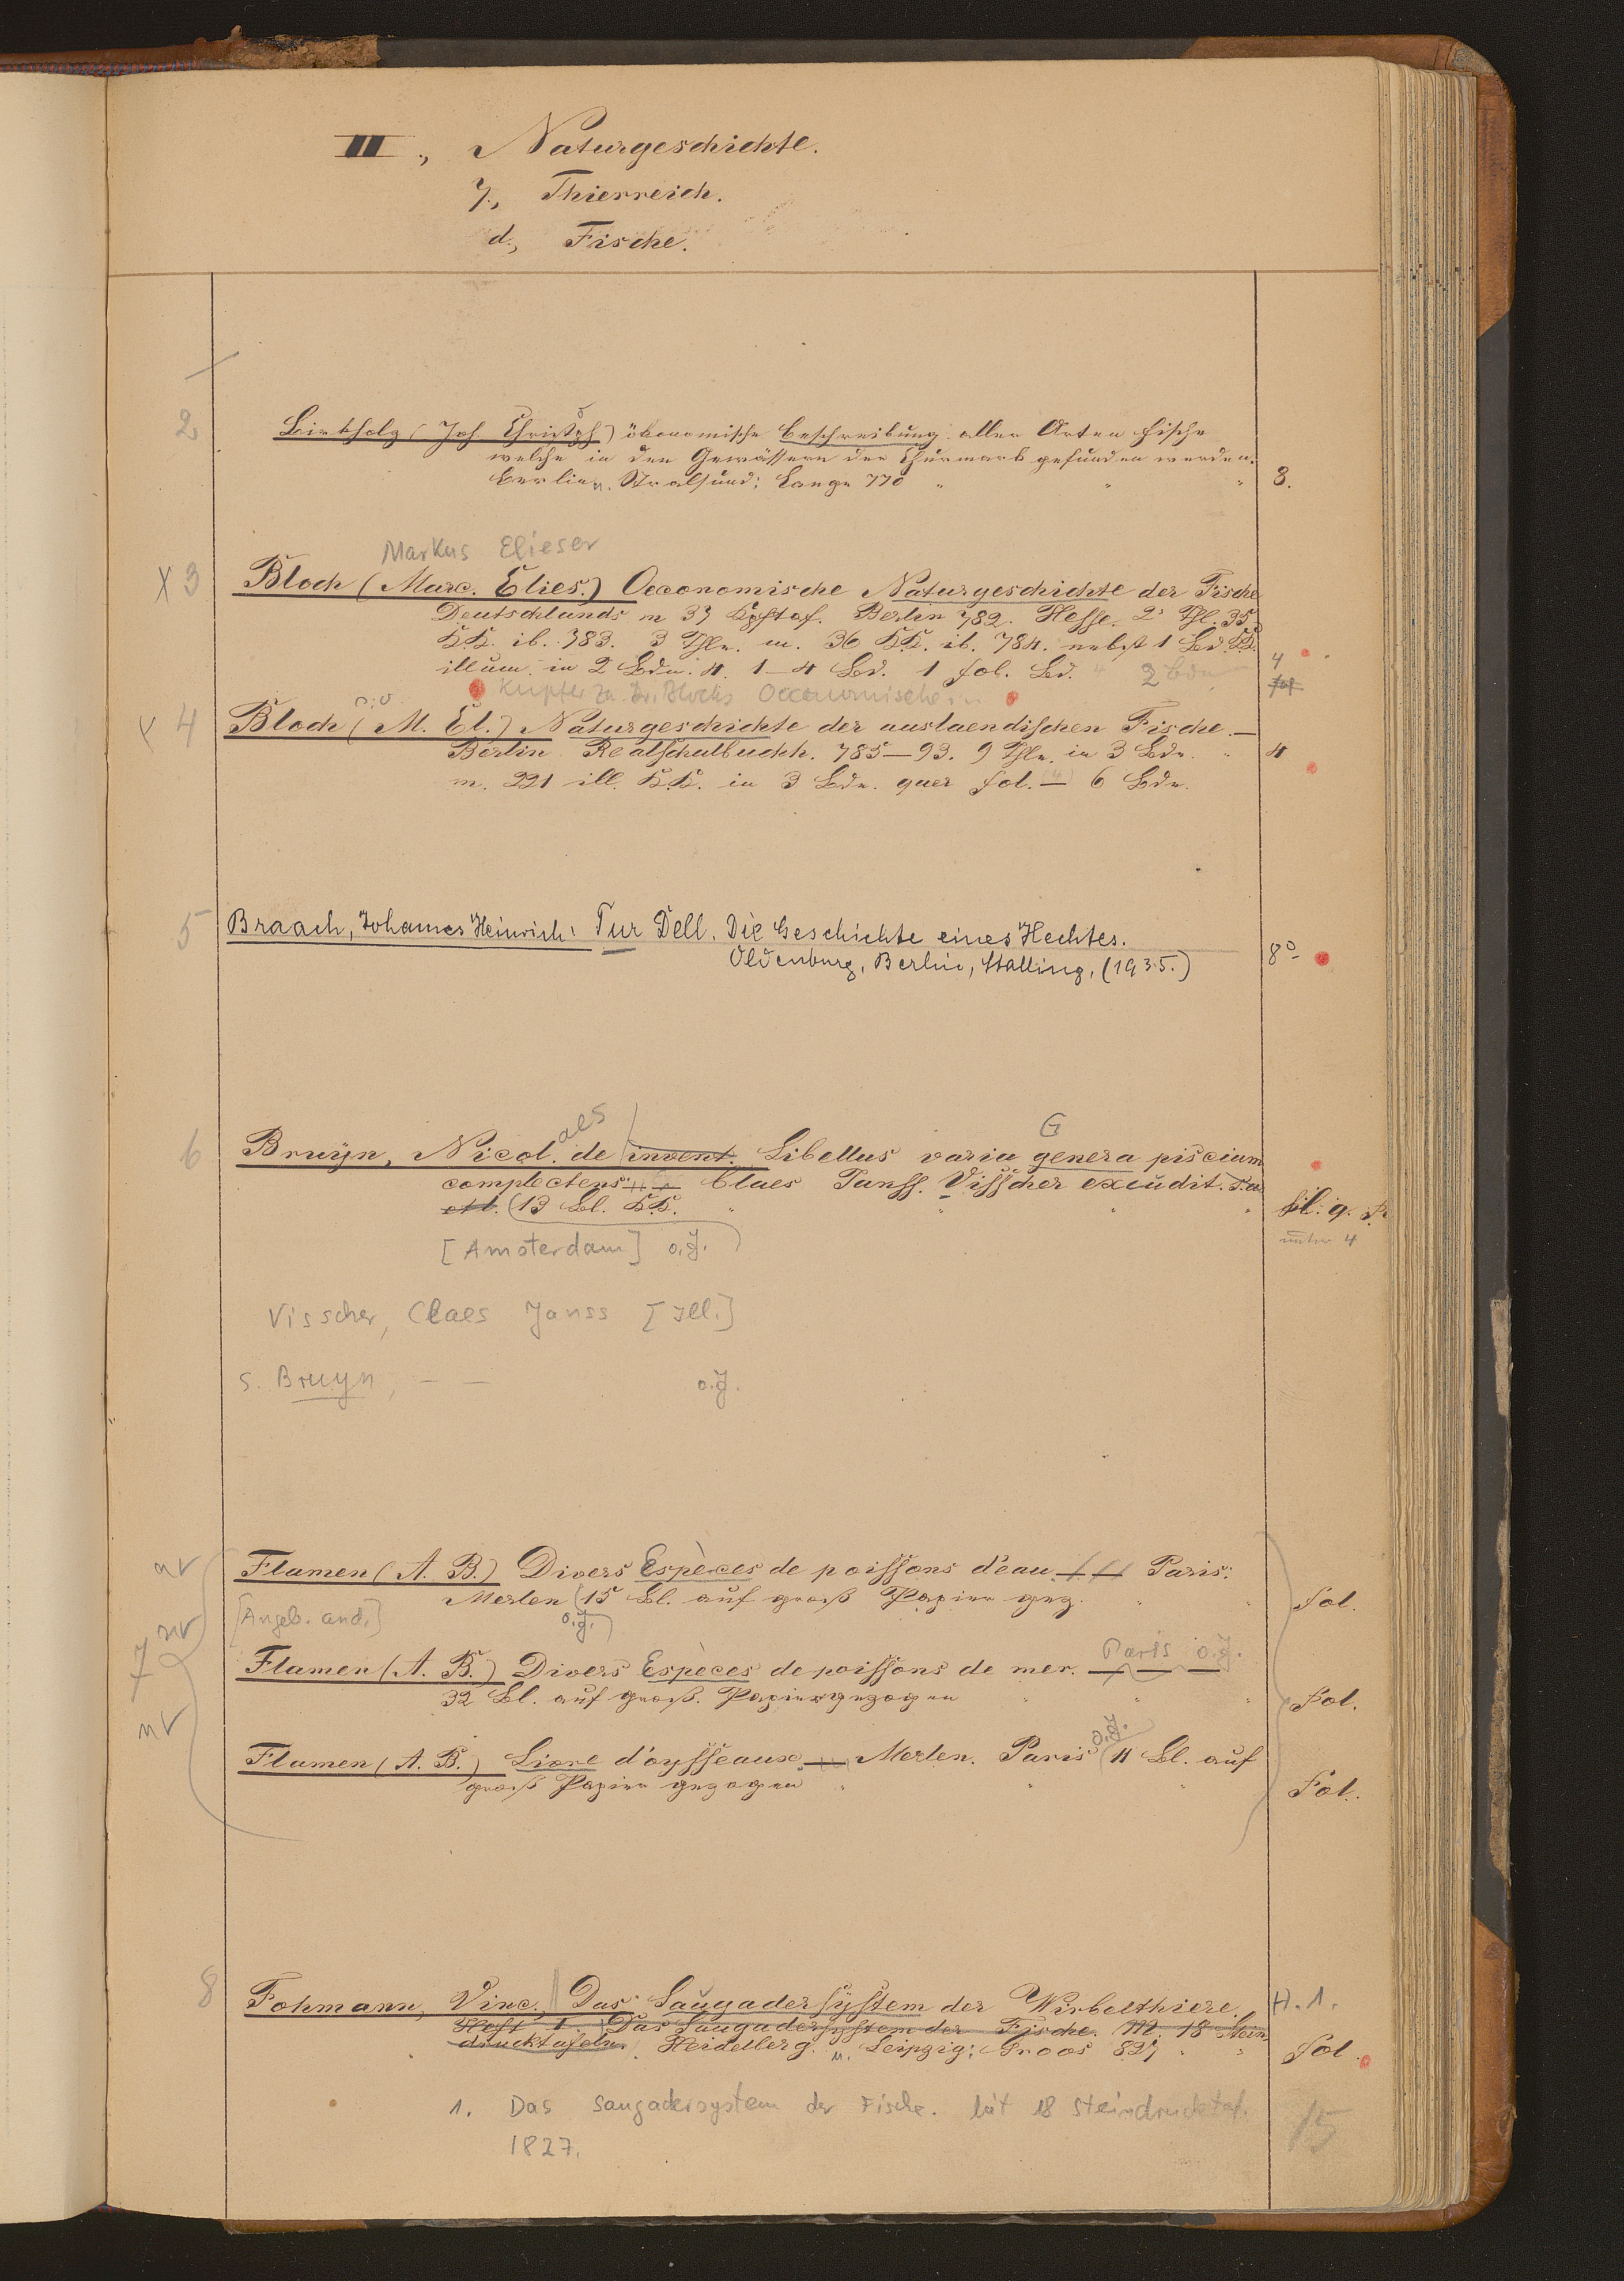 III., Naturgeschichte.
7., Thierreich.
d., Fische.
2
Birkholz (Joh. Christoph) ökonomische Beschreibung aller Arten Fische
welche in den Gewässern der Churmark gefunden werden.
Berlin u. Stralsund; Lange 770 " " " 8.
Markus Elieser
X 3 Bloch (Marc. Elies.) Oeconomische Naturgeschichte der Fische
Deutschlands m 37 Kpftaf. Berlin 782. Hesse. 2r Thl. 35
K.K. ib. 783. 3 Thle. m. 36 K.K. ib. 784. nebst 1 Bd. K.K.
illum. in 2 Bdn. 4. 1–4 Bd. 1 fol. Bd. 2 Bde 4
fol
Kupfer zu Dr. Blochs Oeconomische
X 4 Bloch (M. El.) Naturgeschichte der auslaendischen Fische. —
Berlin Realschulbuchh. 785–93. 9 Thle. in 3 Bdn. " 4
m. 221 ill. K.K. in 3 Bdn. quer fol. (4) — 6 Bde.
5 Braach, Johannes Heinrich: Tur Dell. Die Geschichte eines Hechtes.
Oldenburg, Berlin, Stalling, (1935.) 8°
aes G
6 Bruÿn, Nicol. de invent. Libellus varia genera piscium
complectens. Claes Janss. Visscher excudit. s.a.
(13 Bl. K.K. " " " " q. F.
unter 4
[Amsterdam] o.J.
Visscher, Claes Janss [Ill.]
s. Bruyn, — — o.J.
nv
Flamen (A. B.) Divers Espèces de poissons d'eau Paris:
Merlen (15 Bl. auf groß Papier gez. " " Fol.
[Angeb. and.] o.J.
nv
7 Flamen (A. B.) Divers Espèces de poissons de mer. Paris o.J.
32 Bl. auf groß. Papier gezogen " " " Fol.
nv
o.J.
Flamen (A. B.) Livre d'oysseaux. — Merlen. Paris (11 Bl. auf
groß Papier gezogen " " " Fol.
8 Fohmann, Vinc. Das Saugadersystem der Wirbelthiere. H. 1.
Heft I. Das Saugadersystem der Fische. M. 18 Stein
drucktafeln. Heidelberg. u. Leipzig; Groos 827 " " Fol.
1. Das Saugadersystem der Fische. Mit 18 Steindrucktaf.
1827.
15